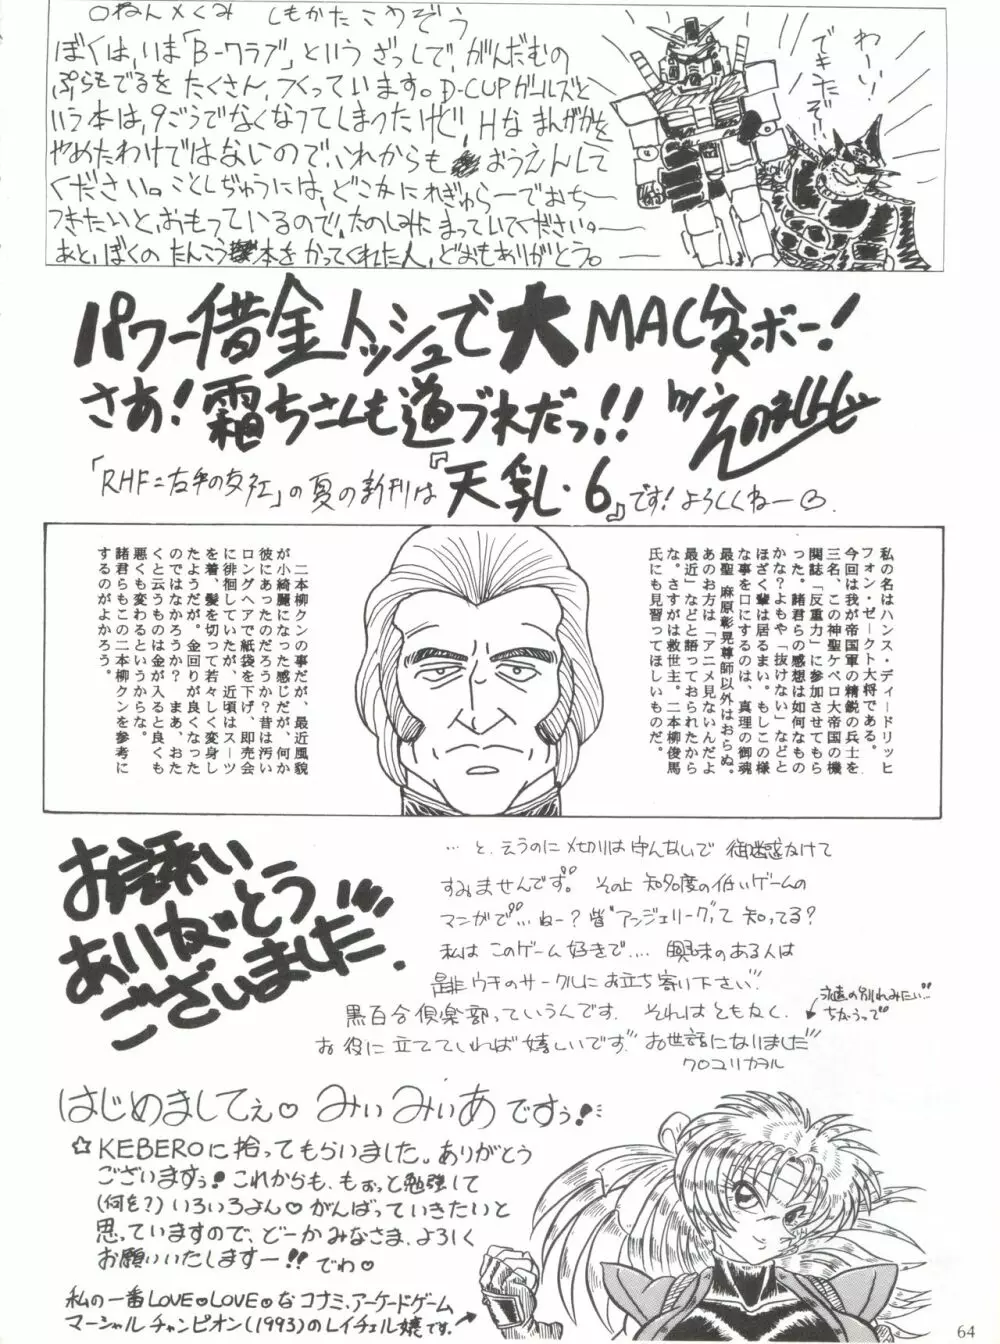 〇ねん×くみ しもかたこうぞう
ぼくは、いま「B-クラブ」というざっしで、がんだむの
ぷらもでるをたくさん、つくっています。D-CUPガールズと
いう本は、9ごうでなくなってしまったけど、Hなまんがかを
やめたわけではないので、これからもおうえんして
ください。ことしじゅうには、どこかにれぎゅらーでおち
つきたいと、おもっているので、たのしみにまっていてください。
あと、ぼくのたんこう本をかってくれた人、どおもありがとう。
わーい!
できたぞ!!
パワー借金トッシュで大MAC貧ボー!
さあ!霜ちさんも道づれだっ!! by
「RHF=右手の女江」の夏の新刊は『天乳・6』です!よろしくねー
私の名はハンス・ディードリッヒ
フォン・ゼークト大将である。
今回は我が帝国軍の精鋭の兵士を
三名、この神聖ケベロ大帝国の機
関誌「反重力」に参加させてもら
った。諸君らの感想は如何なもの
かな?よもや「抜けない」などと
ほざく輩は居るまい。もしこの様
な事を口にするのは、真理の御魂
最聖 麻原彰晃尊師以外はおらぬ。
あのお方は「アニメ見ないんだよ
最近」などと語っておられたから
な。さすがは救世主。二本柳俊馬
氏にも見習ってほしいものだ。
二本柳クンの事だが、最近風貌
が小綺麗になった感じだが、何か
彼にあったのだろうか?昔は汚い
ロングヘアで紙袋を下げ、即売会
に徘徊していたが、近頃はスーツ
を着、髪を切って若々しく変身し
たようだが。金回りが良くなった
のではなかろうか?まあ、おた
くと云うものは金が入ると良くも
悪くも変わるというからな。
諸君らもこの二本柳クンを参考に
するのがよかろう。
お誘い
ありがとう
ございました。
…と、えうのに〆切りは守んないで 御迷惑かけて
すみませんです。その上 知名度の低いゲームの
マンガで…ねー?皆"アンジェリーク"って知ってる?
私は このゲーム好きで…. 興味のある人は
是非 ウチのサークルにお立ち寄り下さい
黒百合倶楽部っていうんです. それはともかく.
永遠の別れみたい…
ちがうって
お役に立てていれば嬉しいです お世話になりました
クロユリカヲル
はじめましてぇ♡ みぃみぃあですぅ!
☆KEBEROに拾ってもらいました。ありがとう
ございますぅ!これからも、もぉっと勉強して
(何を?)いろいろよん♡がんばっていきたいと
思っていますので、どーかみなさま、よろしく
お願いいたしますー!! でわ♡
私の一番LOVE♡LOVE♡なコナミ、アーケードゲーム
マーシャルチャンピオン(1993)のレイチェル嬢です。
64